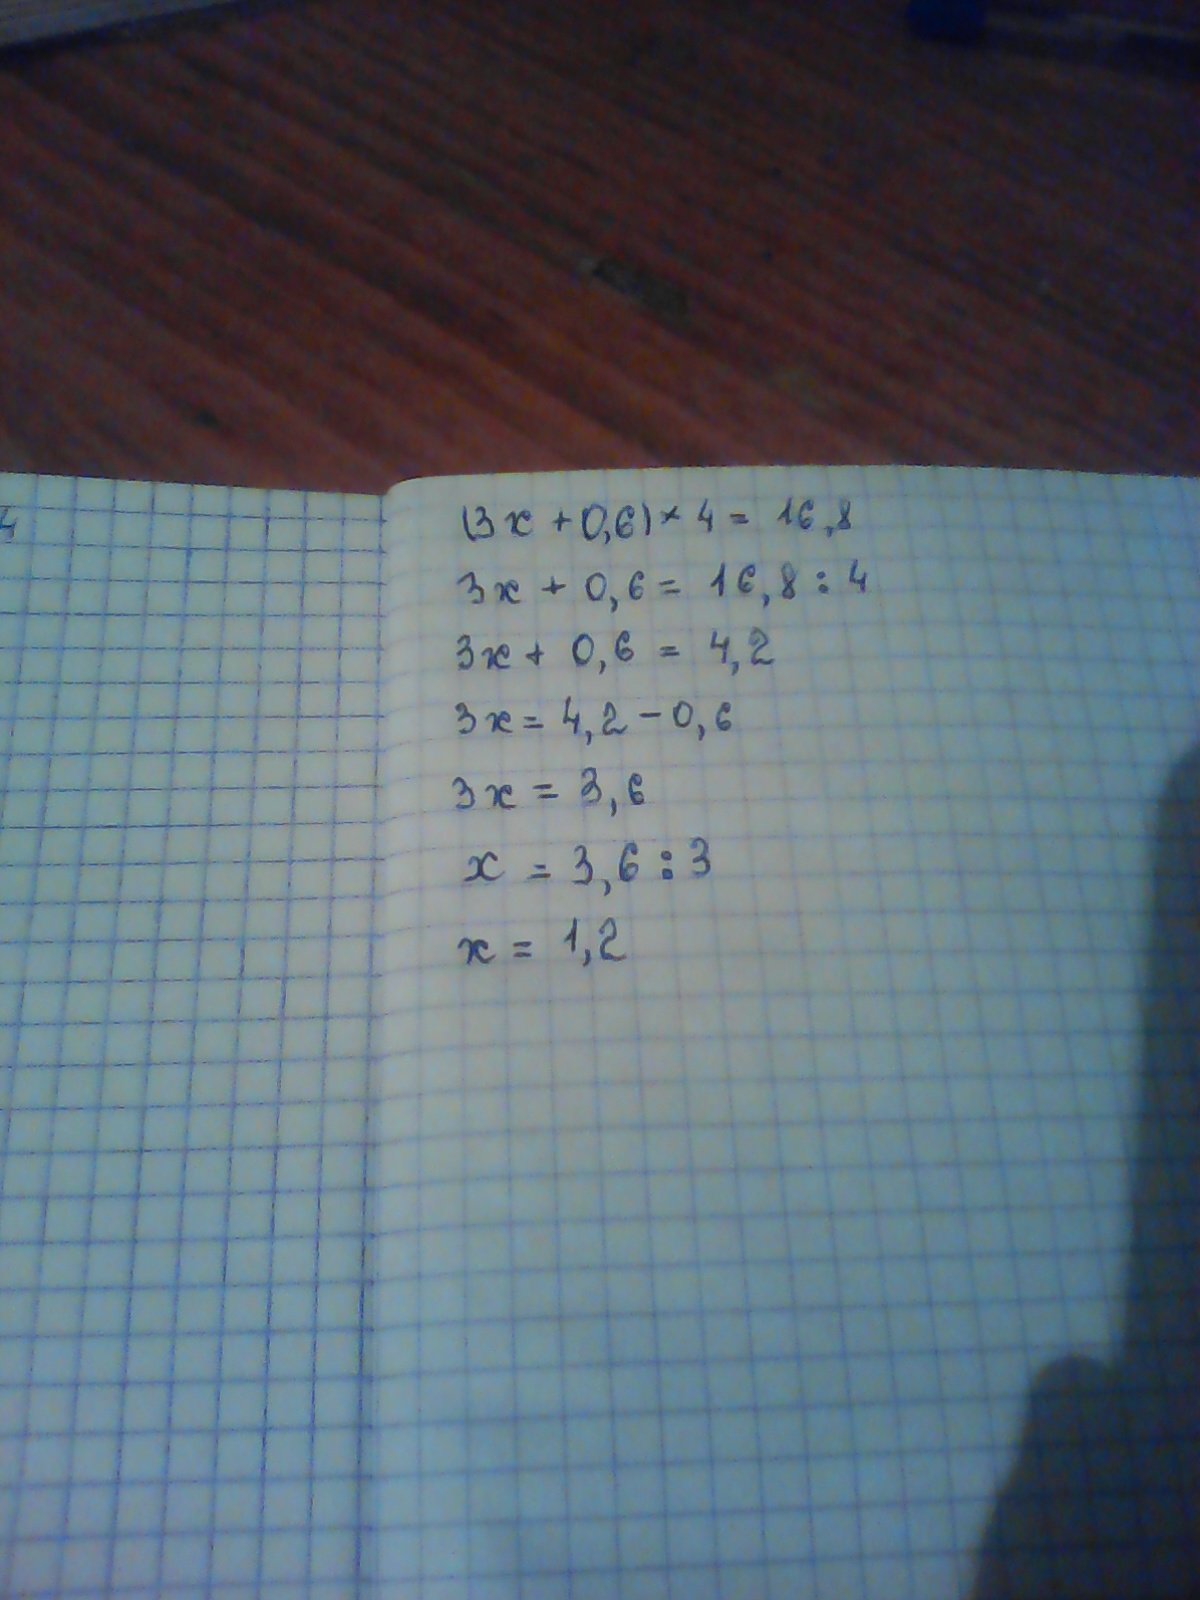 4
(3x + 0,6) × 4 = 16,8
3x + 0,6 = 16,8 : 4
3x + 0,6 = 4,2
3x = 4,2 - 0,6
3x = 3,6
x = 3,6 : 3
x = 1,2